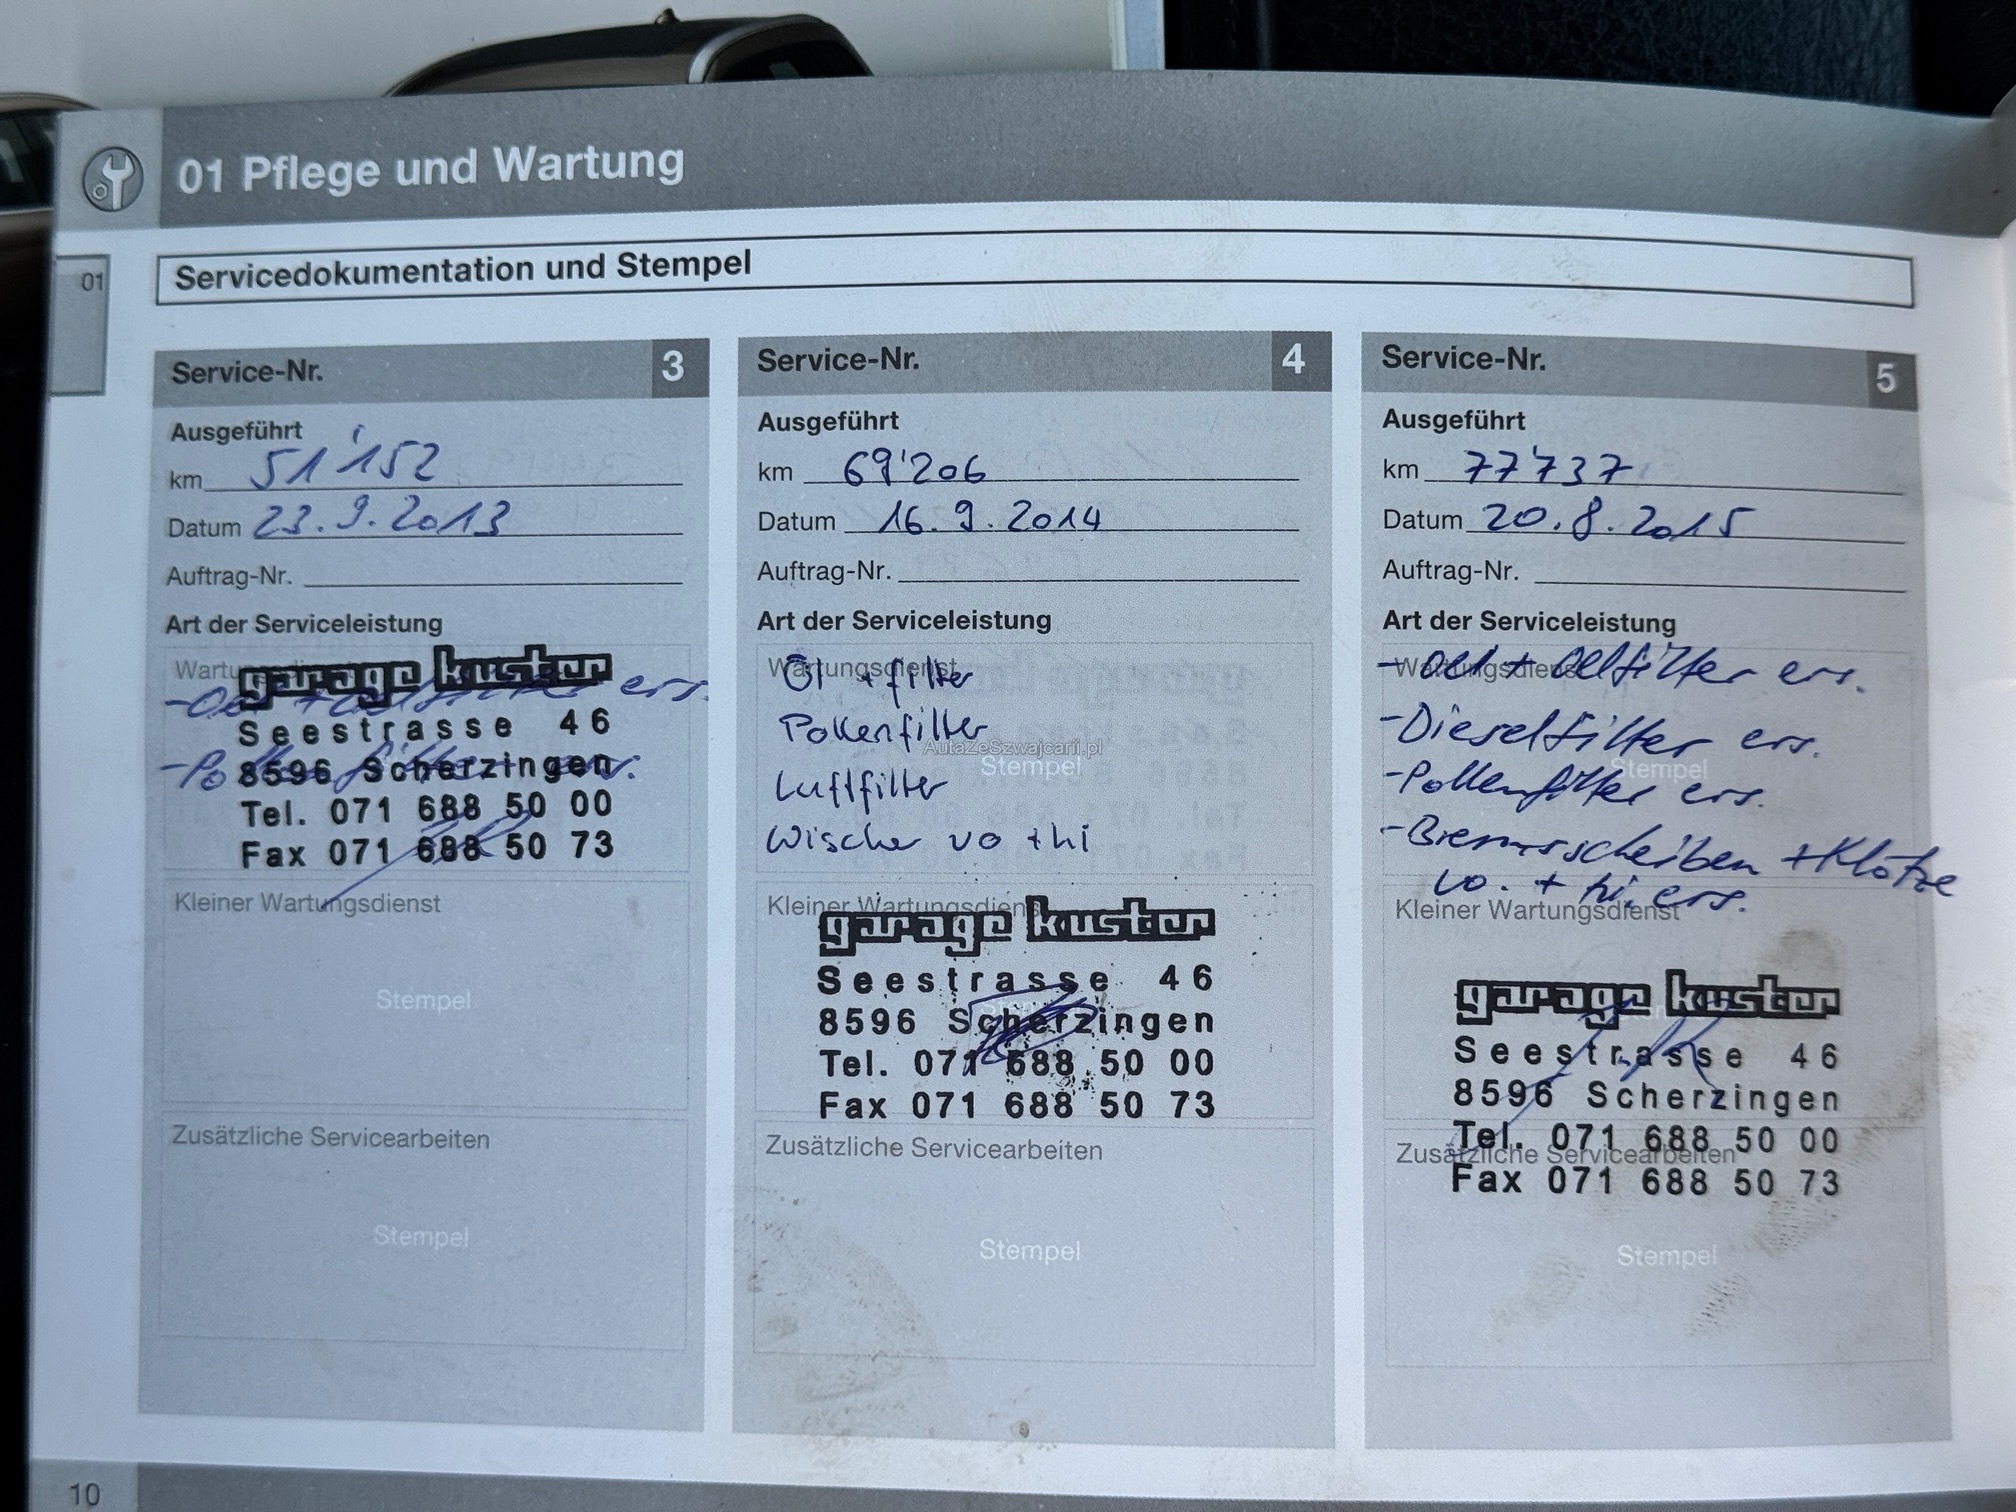 01 Pflege und Wartung
01
Servicedokumentation und Stempel
Service-Nr. 3
Ausgeführt
km 51'152
Datum 23.9.2013
Auftrag-Nr.
Art der Serviceleistung
garage kuster
- Oel + Oelfilter ers.
Seestrasse 46
- Pollenfilter ers.
8596 Scherzingen
Tel. 071 688 50 00
Fax 071 688 50 73
Kleiner Wartungsdienst
Stempel
Zusätzliche Servicearbeiten
Stempel
Service-Nr. 4
Ausgeführt
km 69'206
Datum 16.9.2014
Auftrag-Nr.
Art der Serviceleistung
Wartungsdienst
Öl + filter
Pollenfilter
AutaZeSzwajcarii.pl
Stempel
Luftfilter
Wischer vo + hi
Kleiner Wartungsdienst
garage kuster
Seestrasse 46
8596 Scherzingen
Tel. 071 688 50 00
Fax 071 688 50 73
Zusätzliche Servicearbeiten
Stempel
Service-Nr. 5
Ausgeführt
km 77'737
Datum 20.8.2015
Auftrag-Nr.
Art der Serviceleistung
Wartungsdienst
- Oel + Oelfilter ers.
- Dieselfilter ers.
Stempel
- Pollenfilter ers.
- Bremsscheiben + Klötze
vo. + hi. ers.
Kleiner Wartungsdienst
garage kuster
Seestrasse 46
8596 Scherzingen
Tel. 071 688 50 00
Zusätzliche Servicearbeiten
Fax 071 688 50 73
Stempel
10